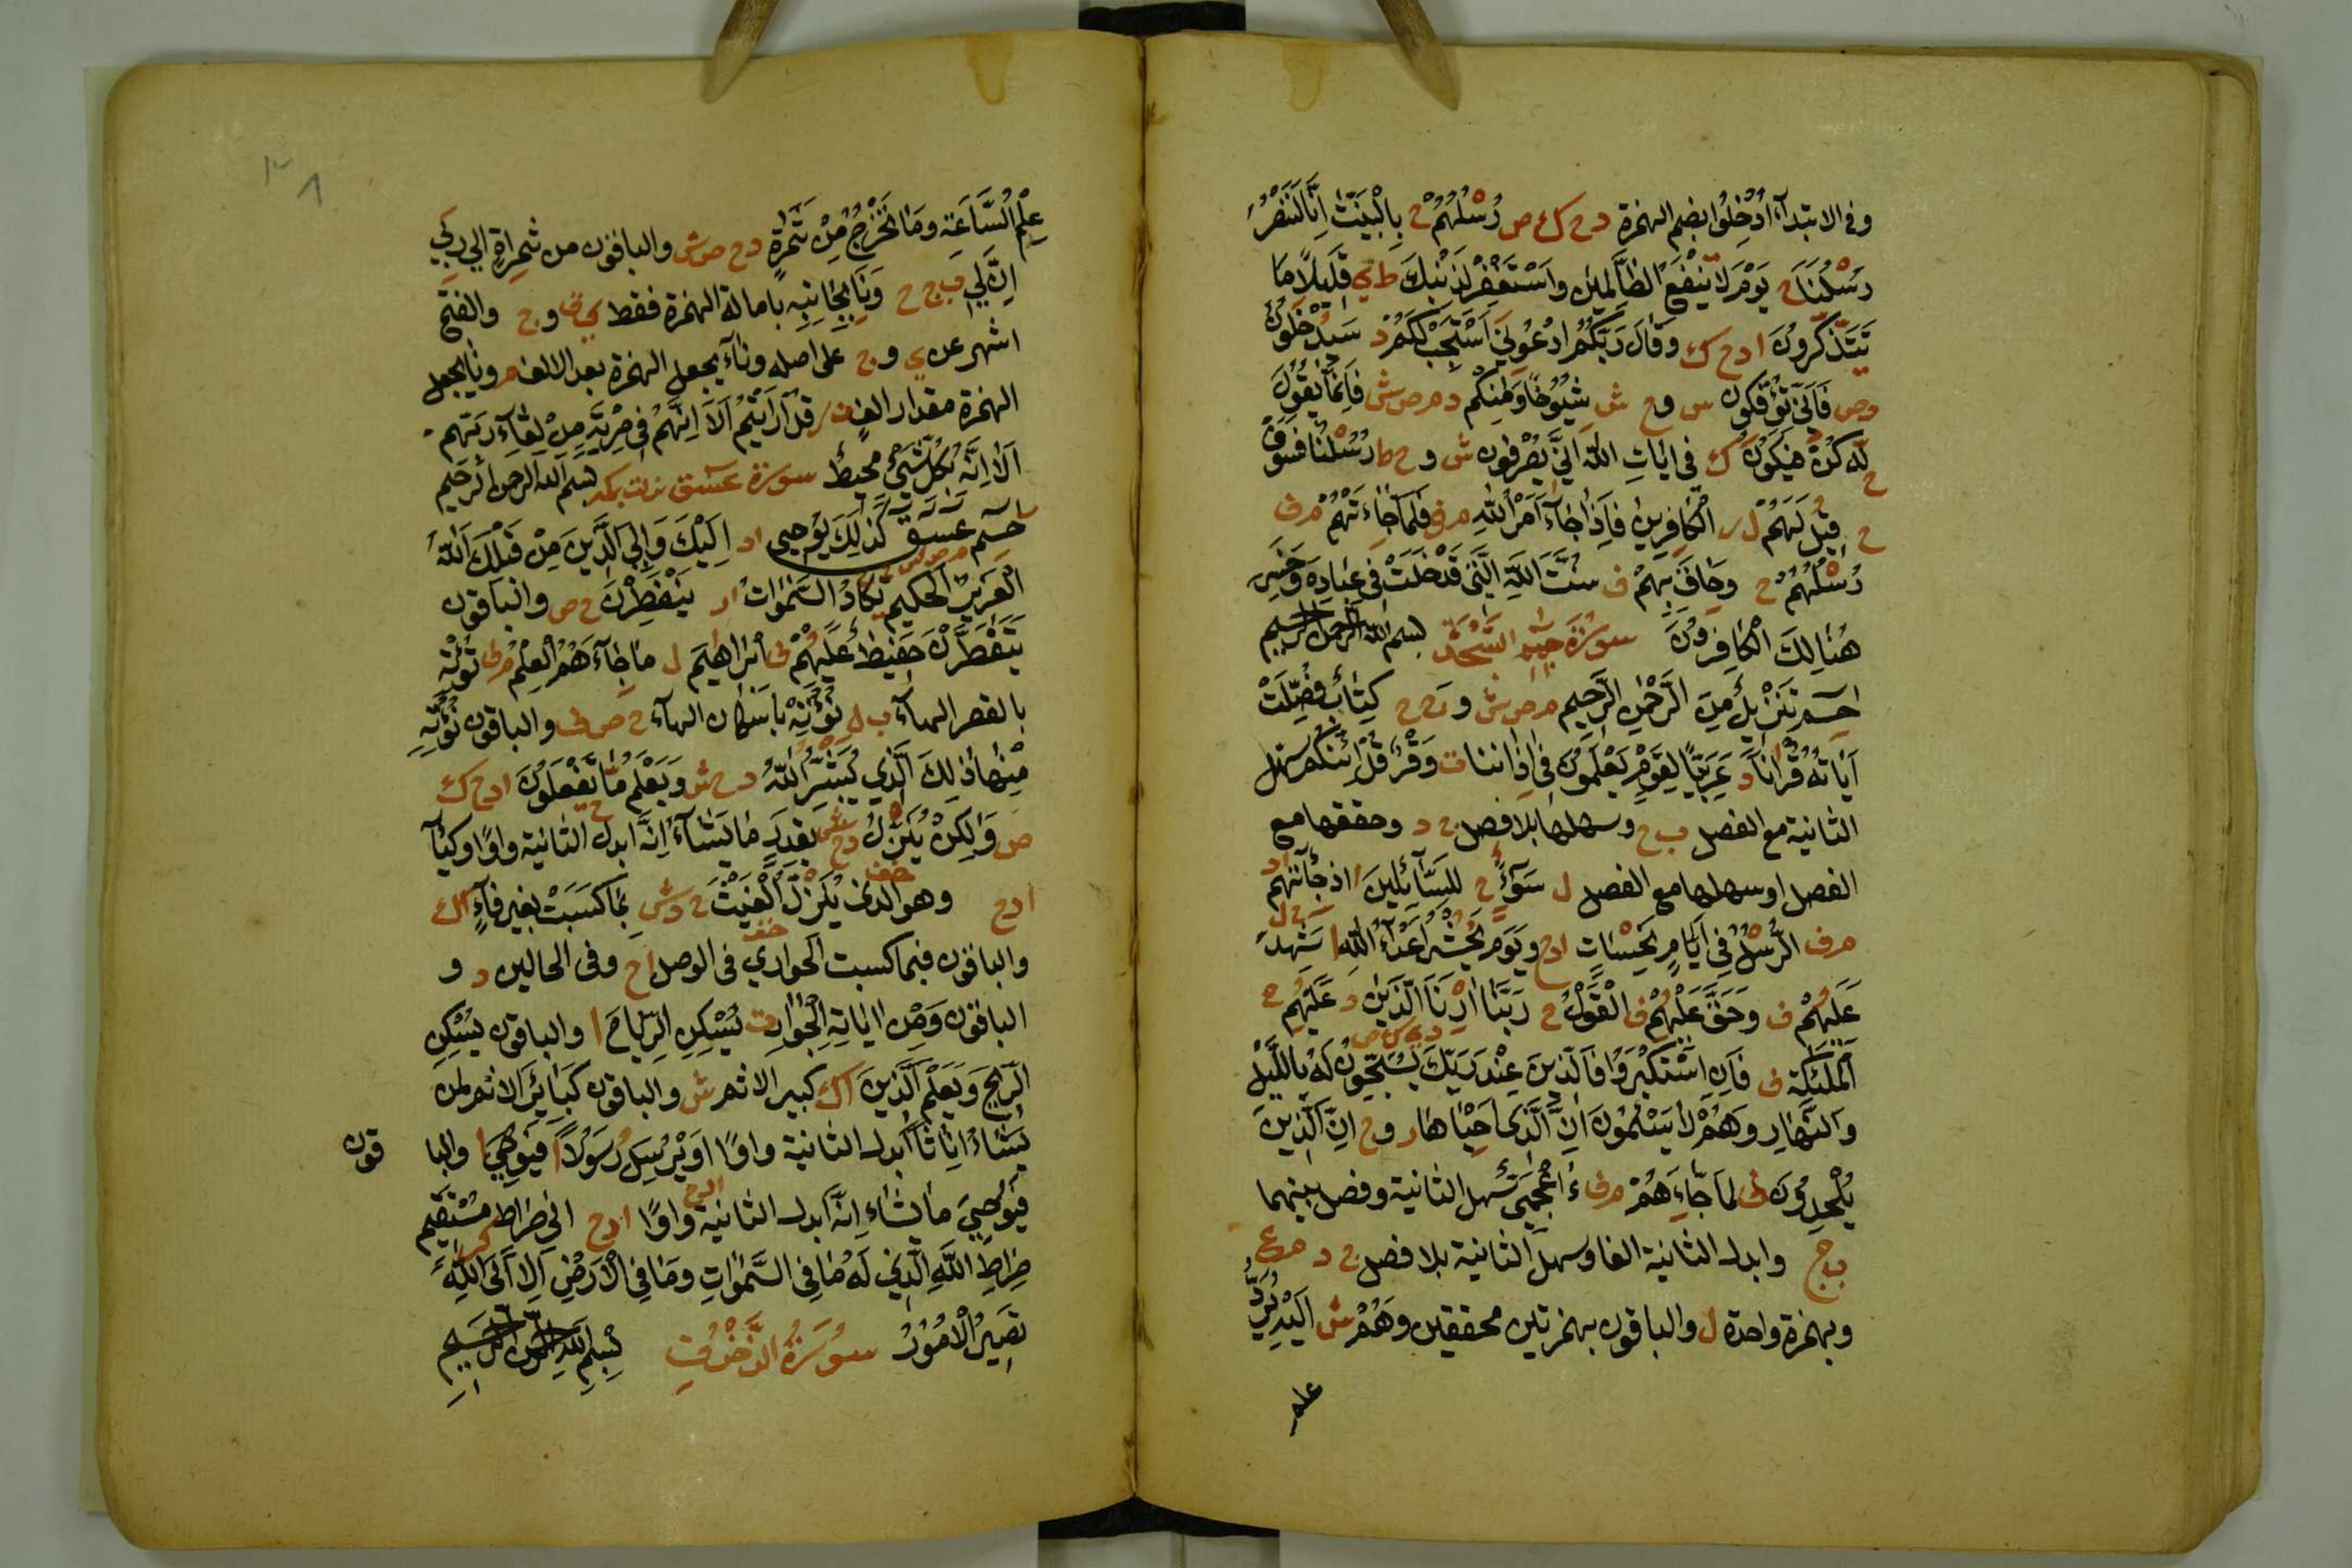 وفي الابتداء اُدْخِلُوا بضم الهمزة د ح ك ص رُسْلُهُمْ ح بِالْبَيِّنٰتِ اِنَّا لَنَنْصُرُ
رُسْلَنَا ح يَوْمَ لَا يَنْفَعُ الظَّالِمِيْنَ وَاسْتَغْفِرْ لِذَنْبِكَ ط ي قَلِيْلًا مَا
تَتَذَكَّرُوْنَ ا د ح ك وَقَالَ رَبُّكُمُ ادْعُوْنِيْ اَسْتَجِبْ لَكُمْ د سَيَدْخُلُوْنَ
وص فَاَنّٰى تُؤْفَكُوْنَ س وح ش شُيُوْخًا وَمِنْكُمْ د م ص ش فَاِنَّمَا يَقُوْلُ
لَهٗ كُنْ فَيَكُوْنَ ك فِي اٰيَاتِ اللّٰهِ اَنّٰى يُصْرَفُوْنَ ش وح ط رُسْلَنَا فَسَوْفَ
ح قِيْلَ لَهُمْ ل ر الْكَافِرِيْنَ فَاِذَا جَآءَ اَمْرُ اللّٰهِ م ف فَلَمَّا جَآءَتْهُمْ م ف
رُسْلُهُمْ ح وَحَاقَ بِهِمْ ف سُنَّتَ اللّٰهِ الَّتِيْ قَدْ خَلَتْ فِيْ عِبَادِهٖ وَخَسِرَ
هُنَالِكَ الْكَافِرُوْنَ سورة حم السَّجْدَة بسم الله الرحمن الرحيم
حٰمٓ تَنْزِيْلٌ مِنَ الرَّحْمٰنِ الرَّحِيْمِ م ص ش و ج ح كِتَابٌ فُصِّلَتْ
اٰيَاتُهٗ قُرْاٰنًا د عَرَبِيًّا لِقَوْمٍ يَعْلَمُوْنَ فِيْ اٰذَانِنَا ت وَقْرٌ قُلْ اَئِنَّكُمْ سهل
الثانية مع الفصل ب ح وسهلها بلا فصل ج د وحققها مع
الفصل او سهلها مع الفصل ل سَوَآءً ح لِلسَّآئِلِيْنَ ا اذ جَآءَتْهُمُ اد
م ف الرُّسْلُ فِيْ اَيَّامٍ نَحْسَاتٍ ا د ح وَيَوْمَ نَحْشُرُ اَعْدَآءَ اللّٰهِ ا شَهِدَ
عَلَيْهُمْ ف وَحَقَّ عَلَيْهُمُ ف الْقَوْلُ ح رَبَّنَا اَرْنَا الَّذَيْنِ د عَلَيْهِمُ ح
الْمَلٰئِكَة ف فَاِنِ اسْتَكْبَرُوْا فَالَّذِيْنَ عِنْدَ رَبِّكَ يُسَبِّحُوْنَ لَهٗ بِاللَّيْلِ
وَالنَّهَارِ وَهُمْ لَا يَسْئَمُوْنَ اِنَّ الَّذِيْ اَحْيَاهَا ر وح اِنَّ الَّذِيْنَ
يُلْحِدُوْنَ ف لَمَّا جَآءَهُمْ م ف ءَاَعْجَمِيٌّ سهل الثانية وفصل بينهما
ب ح وابدل الثانية الفا وسهل الثانية بلا فصل ج د م ع
وبهمزة واحدة ل والباقون بهمزتين محققين وَهُمْ ش اِلَيْهِ يُرَدُّ
عِلْمُ السَّاعَةِ وَمَا تَخْرُجُ مِنْ ثَمَرَةٍ د ح ص ش والباقون من ثَمَرَاتٍ الي رَبِّيَ
اِنَّ لِيْ ب ج ح وَنَأٰى بِجَانِبِهٖ بامالة الهمزة فقط ي ق و ج والفتح
اشهر عن ي و ج على اصله وناء بجعل الهمزة بعد الالف م ونأي بجعل
الهمزة مقدار الف ف ر قُلْ اَرَاَيْتُمْ اَلَا اِنَّهُمْ فِيْ مِرْيَةٍ مِنْ لِقَآءِ رَبِّهِمْ
اَلَا اِنَّهٗ بِكُلِّ شَيْءٍ مُحِيْطٌ سورة عسق نزلت بمكة بسم الله الرحمن الرحيم
حٰمٓ عٓسٓقٓ كَذٰلِكَ يُوْحِيْ اد اِلَيْكَ وَاِلَى الَّذِيْنَ مِنْ قَبْلِكَ اللّٰهُ
الْعَزِيْزُ الْحَكِيْمُ يَكَادُ السَّمٰوَاتُ ا ر يَنْفَطِرْنَ ح ص والباقون
يَتَفَطَّرْنَ حَفِيْظٌ عَلَيْهُمْ ف اِبْرَاهِيْمَ ل مَا جَآءَهُمُ الْعِلْمُ م ف نُؤْتِهِ
بالقصر الهاء ب ل نُؤْتِهْ باسكان الهاء ح ص ف والباقون نُؤْتِهٖ
مِنْهَا ذٰلِكَ الَّذِيْ يَبْشُرُ اللّٰهُ د ح ش وَيَعْلَمُ مَا يَفْعَلُوْنَ ا د ح ك
ص وَلٰكِنْ يُنْزِلُ د ح بِقَدَرٍ مَا يَشَآءُ اِنَّهٗ ابدل الثانية واوًا وكيآءٍ
ا د ح وهو الذي يُنْزِلُ الْغَيْثَ ح د ش بِمَا كَسَبَتْ بغير فآءٍ ا ك
والباقون فبما كسبت الجواري في الوصل ا ح وفي الحالين د و
الباقون وَمِنْ اٰيَاتِهِ الْجَوَارِ ت يُسْكِنِ الرِّيَاحَ ا والباقون يُسْكِنِ
الرِّيْحَ وَيَعْلَمُ الَّذِيْنَ ا ك كبير الاثم ش والباقون كَبَآئِرَ الاثم لمن
يَشَآءُ اِنَاثًا ابدل الثانية واوًا اَوْ يُرْسِلُ رَسُوْلًا ا فَيُوْحِيْ ا والبا
قون
فَيُوْحِيَ مَا يَشَآءُ اِنَّهٗ ابدل الثانية واوًا ا د ح الى صِرَاطٍ مُسْتَقِيْمٍ
صِرَاطِ اللّٰهِ الَّذِيْ لَهٗ مَا فِي السَّمٰوَاتِ وَمَا فِي الْاَرْضِ اَلَا اِلَى اللّٰهِ
تَصِيْرُ الْاُمُوْرُ سُوْرَةُ الزُّخْرُفِ بِسْمِ اللّٰهِ الرحمن الرحيم